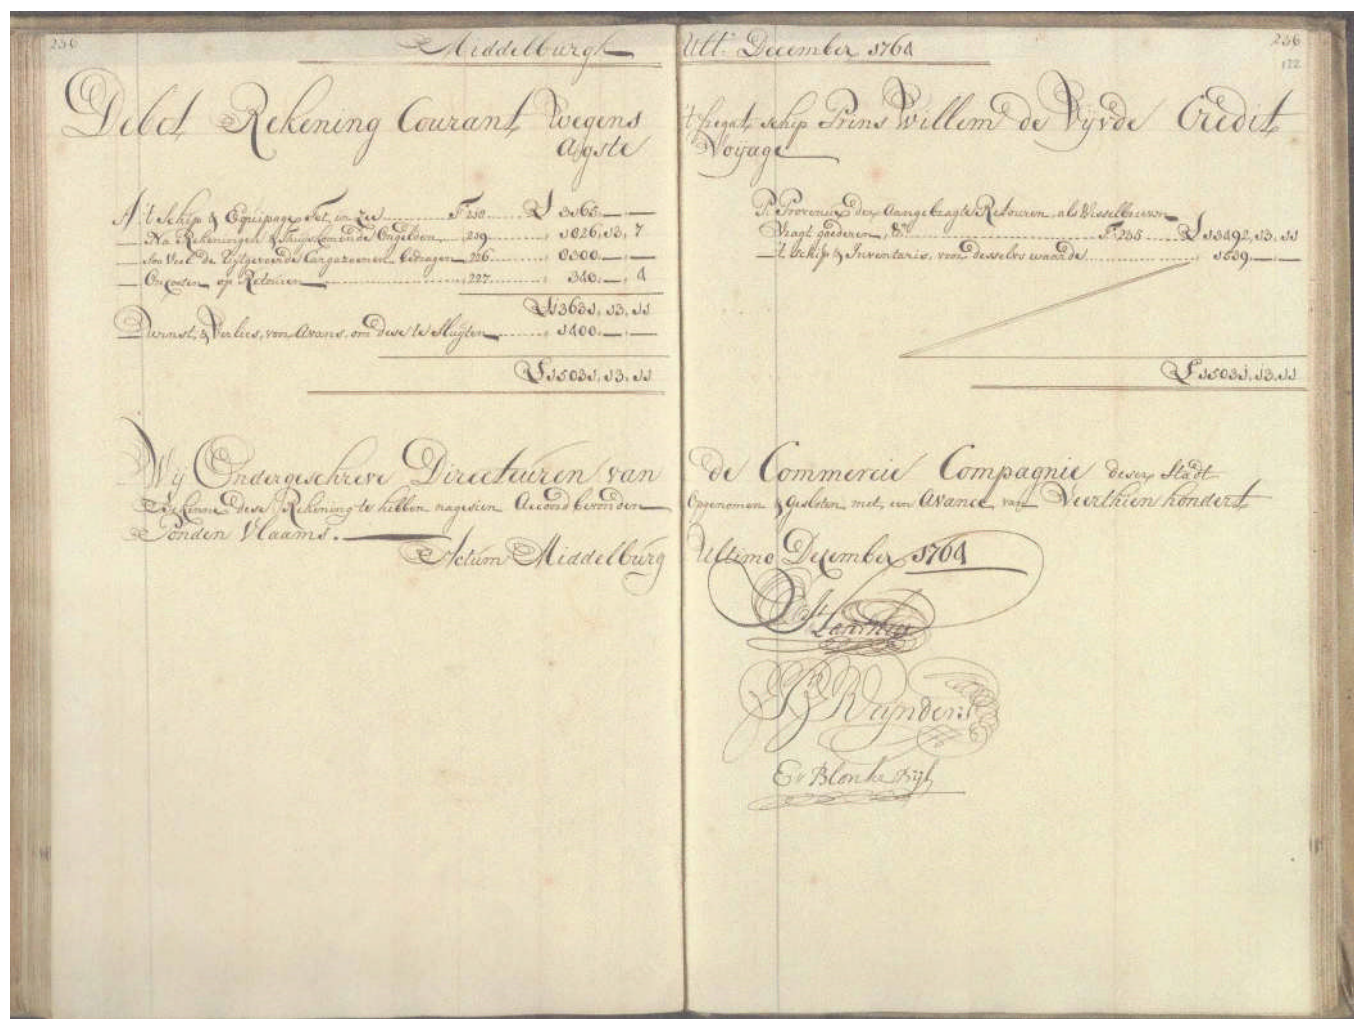 236
Middelburgh
Debet Rekening Courant Wegens
4gste
A 't Schip & Equipage Tot in Zee F.° 218 £ 3965.—.—
Na Rekeningen & Thuyskomende Ongelden 219 1026,13, 7
Soo Veel de Uytgevende Cargazoenen Bedragen 226 8300.—.—
Oncosten op Retouren 227 340.—. 4
£ 13631,13,11
Winst & Verlies, voor Avans, om dese te Sluyten 1400.—.—
£ 15031,13,11
Wij Ondergeschreve Directeuren van
Bekenne dese Rekening te hebben nagesien Accoord bevonden
Ponden Vlaams.
Actum Middelburg
236
122
Ult.° December 1764
't fregat schip Prins Willem de Vijvde Credit
Voijage
Pr Provenue der Aangebragte Retouren, als Wisselbrieven
Vragt goederen, &c.a F.° 235 £ 13492,13,11
't Schip & Inventaris, voor desselvs waarde 1539.—.—
£ 15031,13,11
de Commercie Compagnie deser Stadt
Opgenomen & Gesloten met een Avance van Veerthien hondert
Ultimo December 1764